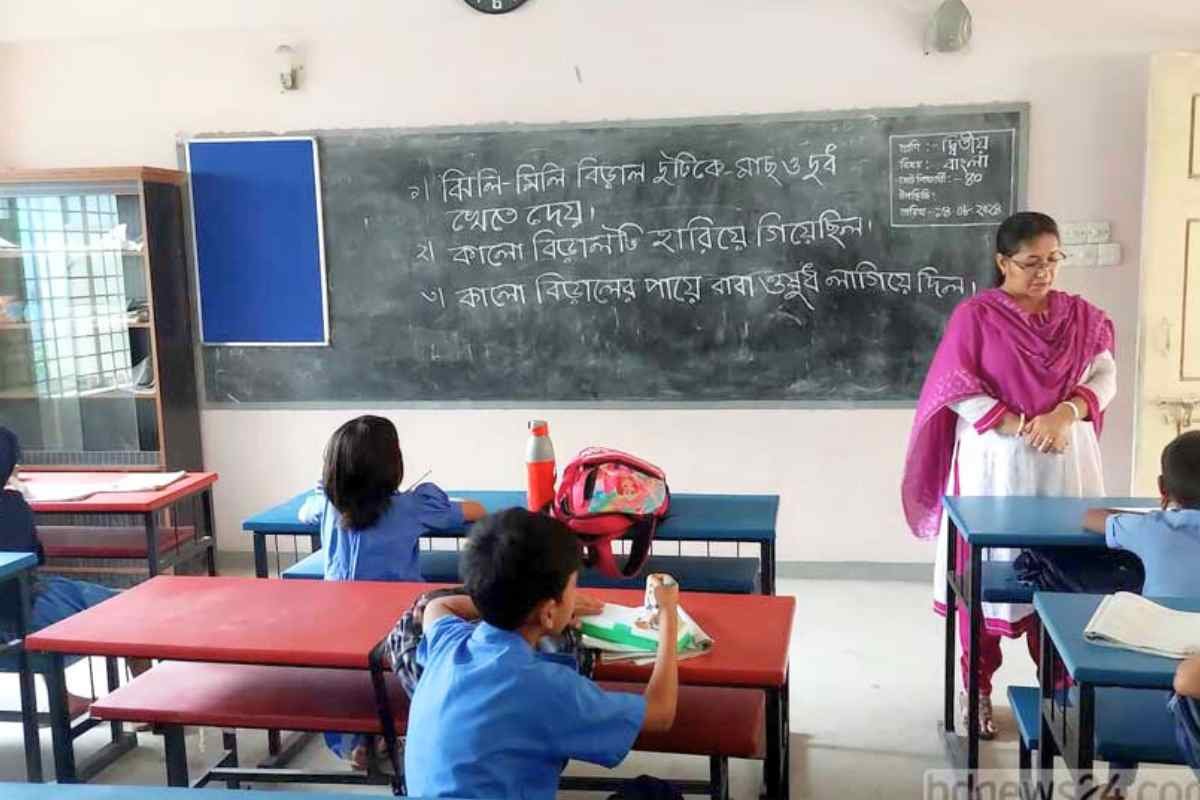 ১। ঝিলি-মিলি বিড়াল দুটিকে মাছ ও দুধ
খেতে দেয়।
২। কালো বিড়ালটি হারিয়ে গিয়েছিল।
৩। কালো বিড়ালের পায়ে বাবা ওষুধ লাগিয়ে দিল।
শ্রেণি :- দ্বিতীয়
বিষয় :- বাংলা
মোট শিক্ষার্থী :- ৪০
উপস্থিতি:
তারিখ -
bdnews24.com